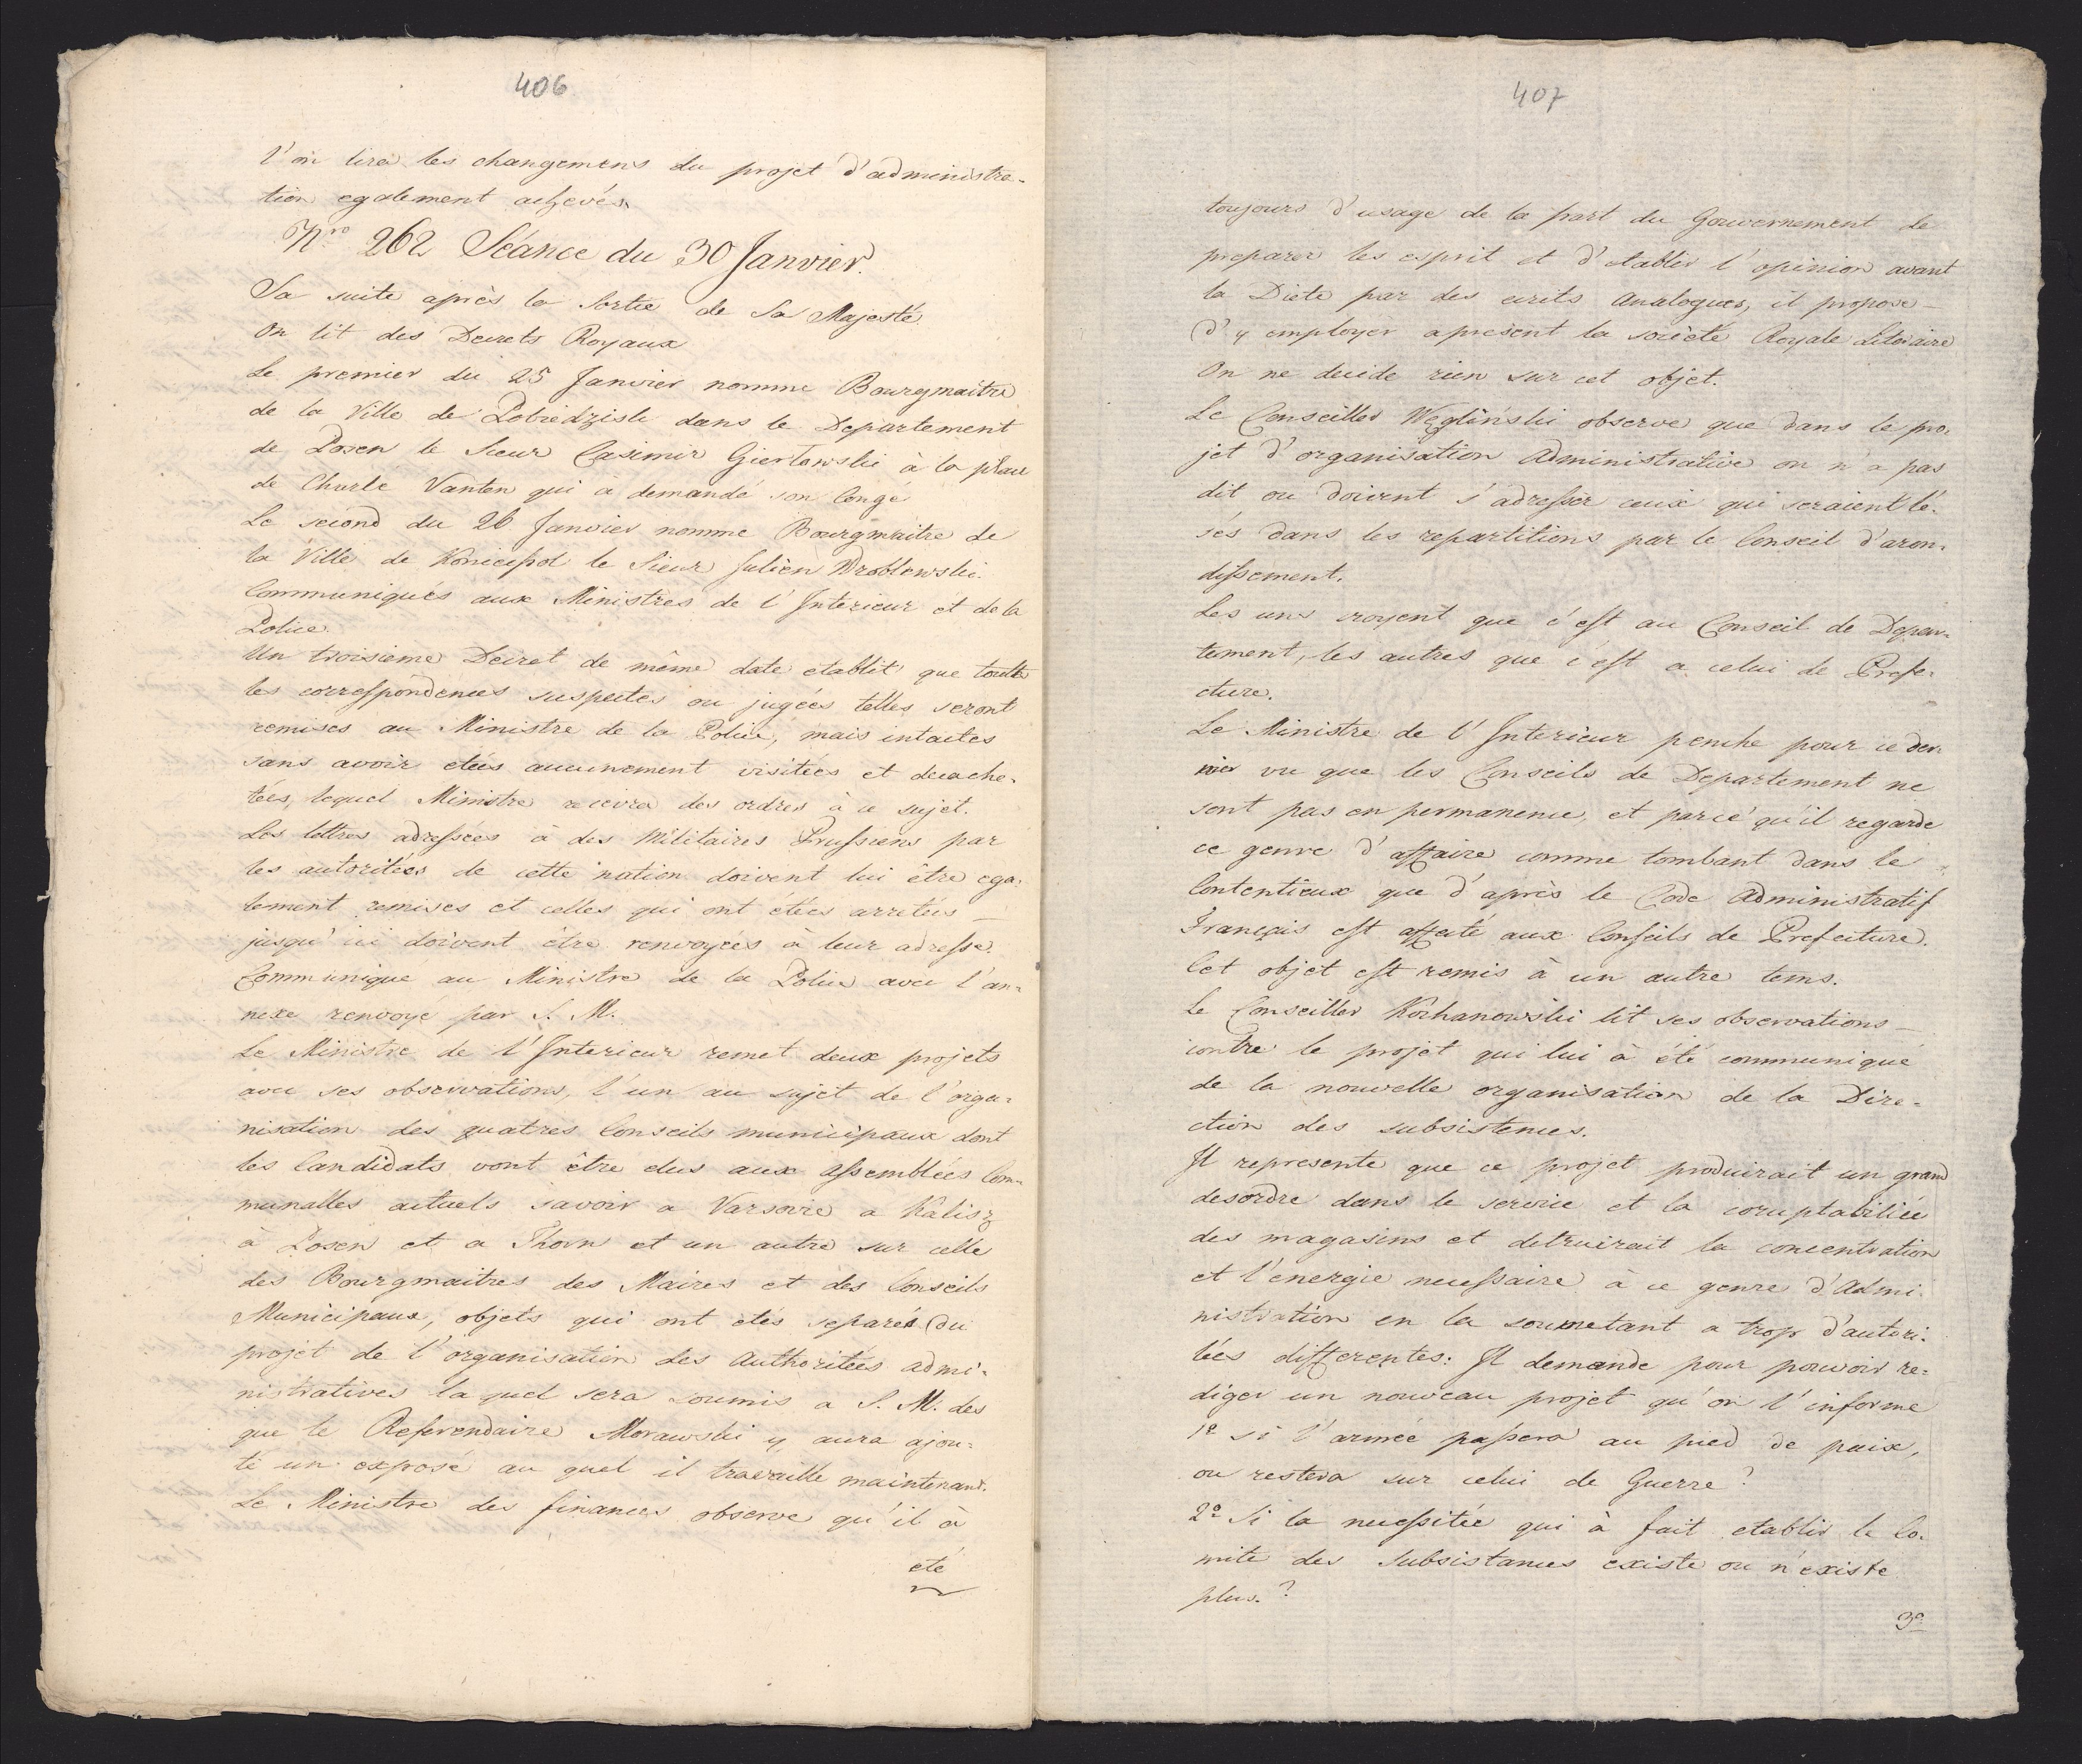 406
l'on lira les changemens du projet d'administra-
tion egalement achevés.
Nro 262 Séance du 30 Janvier.
Sa suite après la Sortie de Sa Majesté
On lit des Decrets Royaux
Le premier du 25 Janvier nomme Bourgmaitre
de la Ville de Pobiedziski dans le Departement
de Posen le Sieur Casimir Giertowski à la place
de Charle Vanten qui a demandé son Congé
Le second du 26 Janvier nomme Bourgmaitre de
la Ville de Koniecpol le Sieur Julien Wroblewski.
Communiqués aux Ministres de l'Interieur et de la
Police.
Un troisieme Decret de même date etablit que toutes
les correspondences suspectes ou jugées telles seront
remises au Ministre de la Police, mais intactes
sans avoir etées aucunement visitées et decache-
tées, lequel Ministre recevra des ordres à ce sujet.
Les lettres adressées à des Militaires Prussiens par
les autoritées de cette nation doivent lui être ega-
lement remises et celles qui ont etées arretées —
jusqu'ici doivent être renvoyées à leur adresse.
Communique au Ministre de la Police avec l'an-
nexe renvoyé par S. M.
Le Ministre de l'Interieur remet deux projets
avec ses observations, l'un au sujet de l'orga-
nisation des quatres Conseils municipaux dont
les Candidats vont être elus aux assemblées Com-
munalles actuels savoir a Varsovie a Kalisz
à Posen et a Thorn et un autre sur celle
des Bourgmaitres des Maires et des Conseils
Municipaux, objets qui ont étés separés du
projet de l'organisation des Authoritées admi-
nistratives laquel sera soumis a S. M. des
que le Referendaire Morawski y aura ajou-
té un exposé au quel il travaille maintenant.
Le Ministre des finances observe qu'il à
eté
407
toujours d'usage de la part du Gouvernement de
preparer les esprit et d'etablir l'opinion avant
la Diete par des ecrits analogues, il propose —
d'y employer apresent la societé Royale Literaire
On ne decide rien sur cet objet.
Le Conseiller Węgliński observe que dans le pro-
jet d'organisation Administrative on n'a pas
dit ou doivent s'adresser ceux qui seraient lé-
sés dans les repartitions par le Conseil d'aron-
dissement.
Les uns croyent que c'est au Conseil de Depar-
tement, les autres que c'est a celui de Prefe-
cture.
Le Ministre de l'Interieur penche pour ce der-
nier vu que les Conseils de Departement ne
sont pas en permanence, et parce qu'il regarde
ce genre d'affaire comme tombant dans le
Contentieux que d'après le Code Administratif
Français est affecté aux Conseils de Prefecture.
Cet objet est remis à un autre tems.
Le Conseiller Kochanowski lit ses observations —
contre le projet qui lui à été communiqué
de la nouvelle organisation de la Dire-
ction des subsistences.
Il represente que ce projet produirait un grand
desordre dans le service et la comptabilité
des magasins et detruirait la concentration
et l'energie necessaire à ce genre d'Admi-
nistration en la soumetant a trop d'autori-
tées differentes: Il demande pour pouvoir re-
diger un nouveau projet qu'on l'informe
1o si l'armée passera au pied de paix,
ou restera sur celui de Guerre?
2o Si la necessitée qui à fait etablir le Co-
mité des Subsistances existe ou n'existe
plus.?
3o